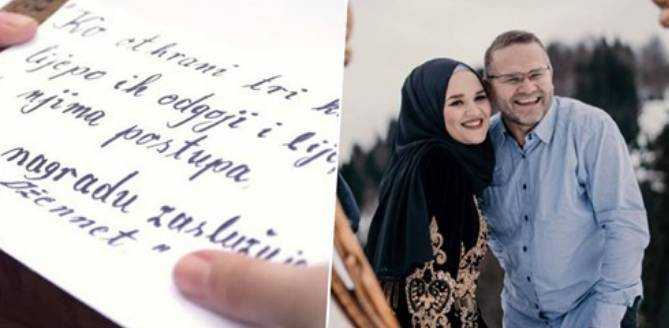 "Ko othrani tri k
lijepo ih odgoji i lije
njima postupa,
nagradu zaslužuje
Džennet."